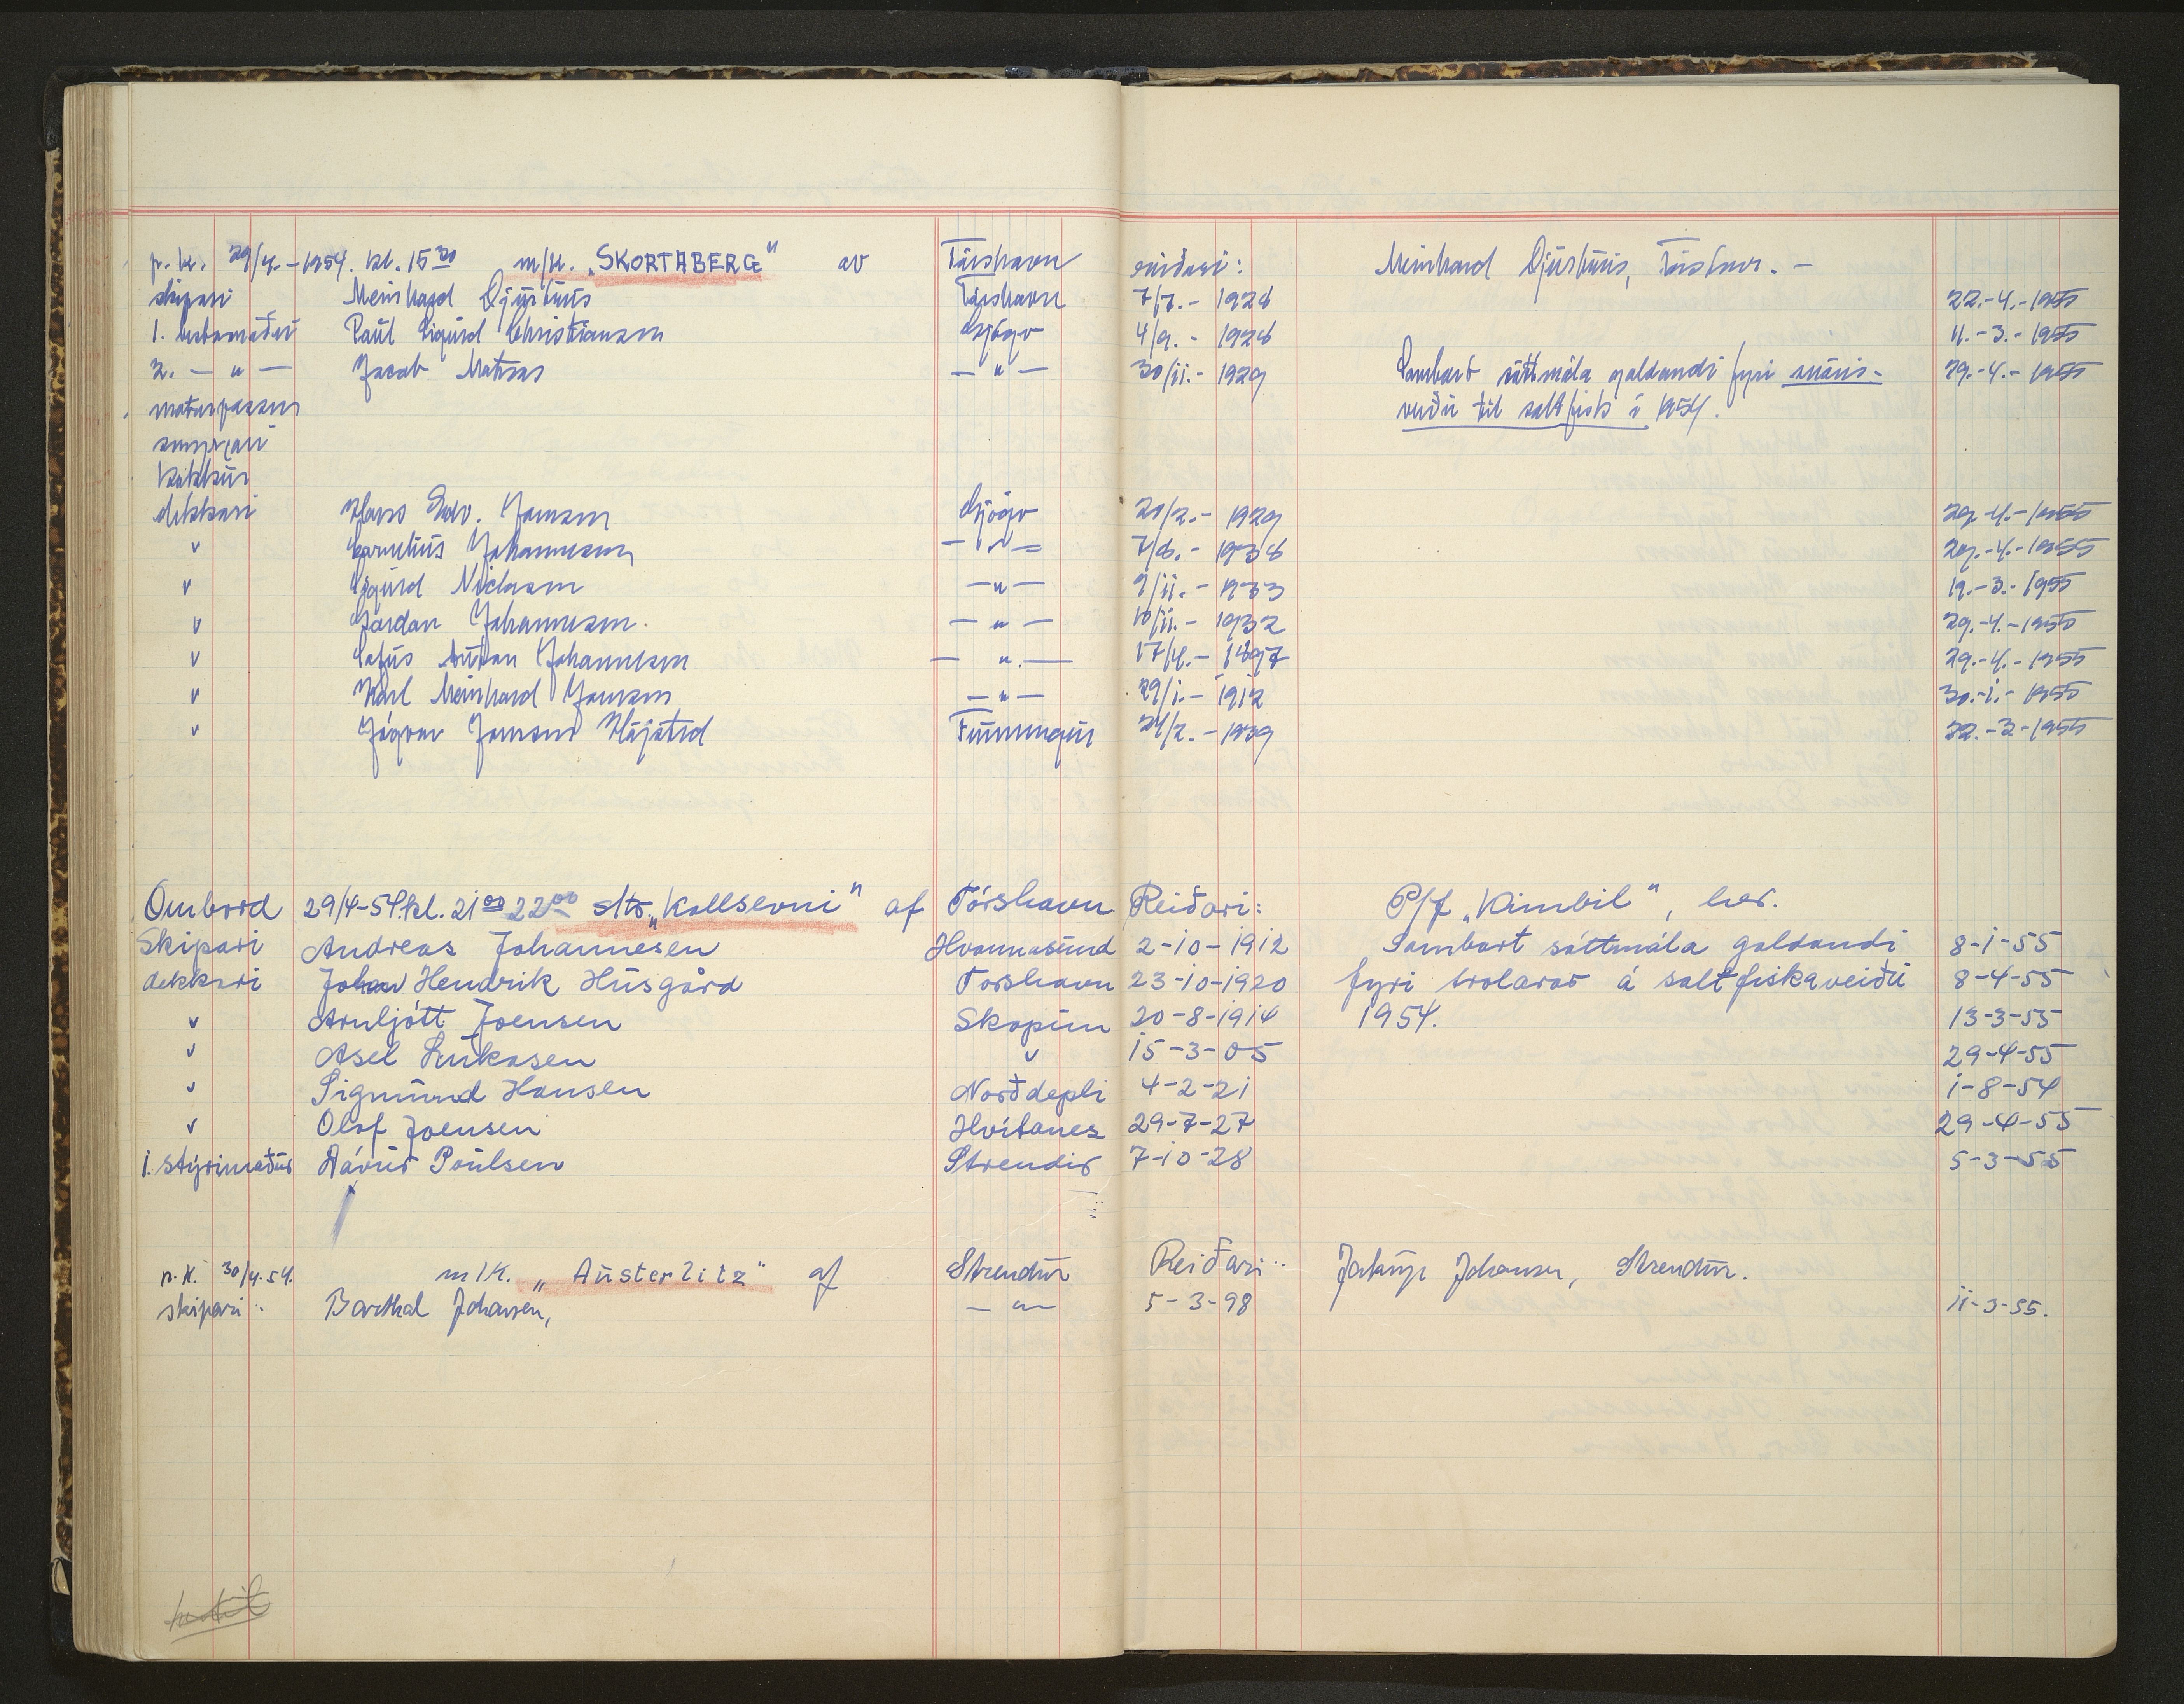 p. k. 29/4.-1954. kl. 15 30 m/k. „SKORTABERG" av Tórshavn reiðari: Meinhard Djurhuus, Tórshavn. -
skipari Meinhard Djurhuus Tórshavn 7/7.- 1928 22.-4.-1955
1. bestamaður Paul Sigurd Christiansen Gjógv 4/9.- 1928 11.-3.-1955
2. — " — Jacob Matras — " — 30/11.- 1929 29.-4.-1955
Sambart sáttmála galdandi fyri snøris-
veiðu til saltfisk í 1954.
maturpassari
kokkur
dekkari Hans Edv. Joensen Gjógv 20/2.- 1929 29.-4.-1955
v Cornelius Johannesen — " — 7/8.- 1938 29.-4.-1955
v Sigurd Niclasen — " — 9/11.- 1933 19.-3.-1955
v Jórdan Johannesen. — " — 10/11.- 1932 29.-4.-1955
v Johannesen — " — 17/4.- 1897 29.-4.-1955
v Karl Meinhard Joensen — " — 29/1.- 1912 30.-1.-1955
v Jógvan Joensen Højsted Funningur 24/2.- 1929 22.-3-1955
Ombord 29/4-54.kl. 21 00 22 00 str. „Kallsevni" af Tórshavn Reiðari: P/f „Kimbil", her.
Skipari Andreas Johannesen Hvannasund 2-10-1912 Sambart sáttmála galdandi 8-1-55
dekkari Johan Hendrik Húsgård Torshavn 23-10-1920 fyri trolarar á saltfiskaveiðu 8-4-55
v Arnljótt Joensen Skopun 20-8-1914 1954. 13-3-55
v Asel Lukasen v 15-3-05 29-4-55
v Sigmund Hansen Norðdepli 4-2-21 1-8-54
v Olaf Joensen Hvítanes 29-7-27 29-4-55
1. stýrimaður Hávur Poulsen Strendir 7-10-28 5-3-55
p.k. 30/4.54. m/k. „Austerlitz" af Strendur Reiðari: Jákup Johansen, Strendur.
skipari: Barthal Johansen, — " — 5-3-98 11-3-55.